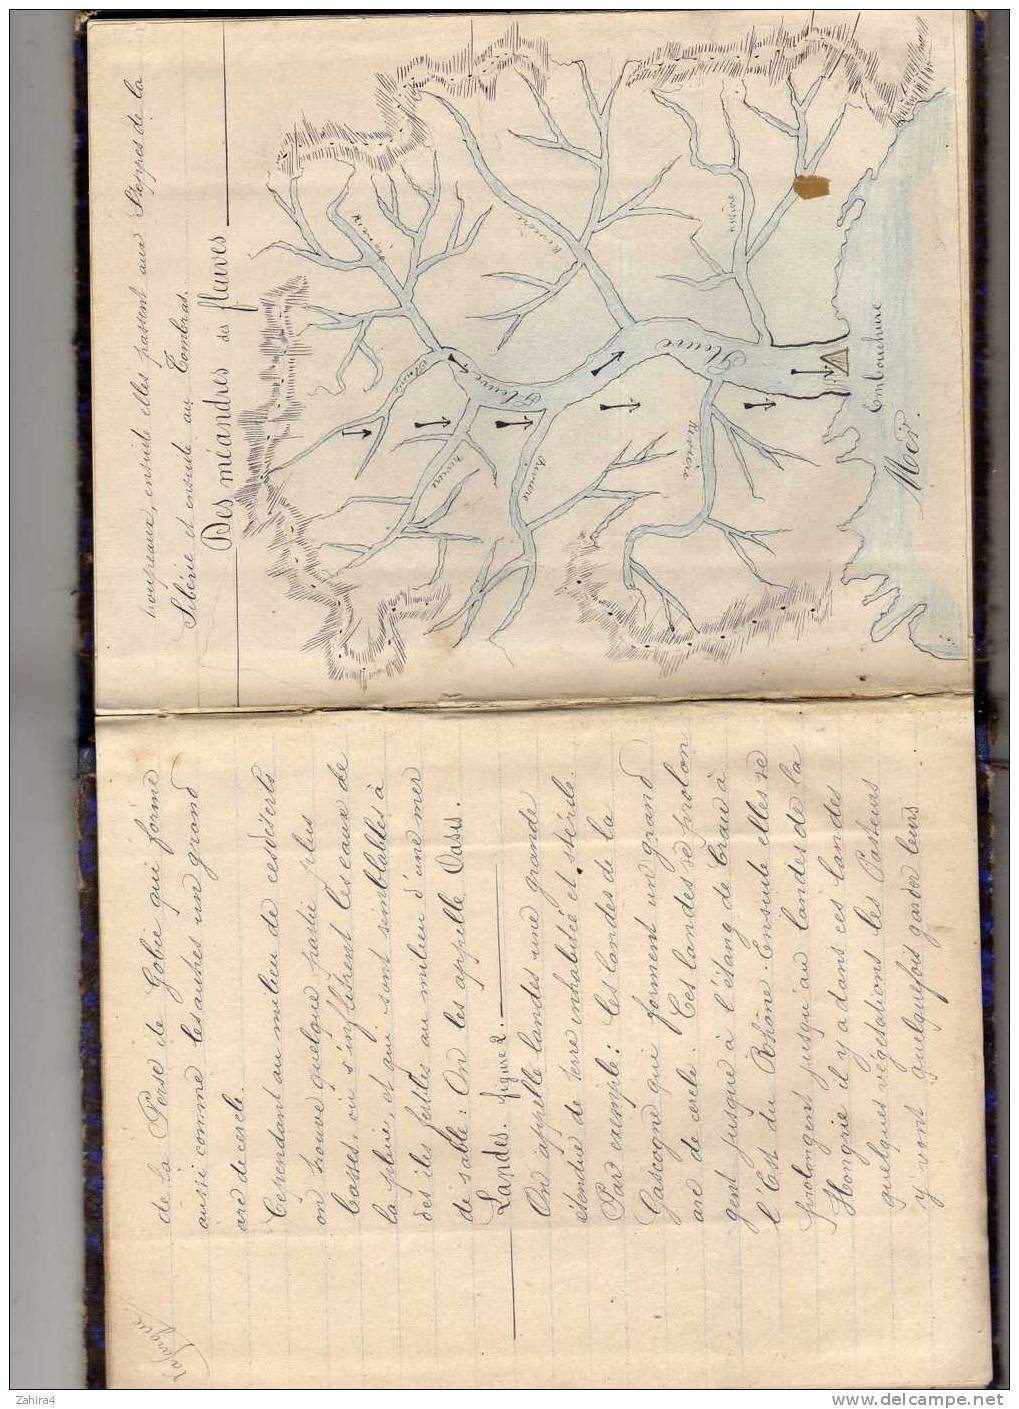 de la Perse de Gobie qui forme
aussi comme les autres un grand
arc de cercle.
Cependant au milieu de ces déserts
on trouve quelque partie plus
basses, où s'infiltrent les eaux de
la pluie, et qui sont semblables à
des iles fertiles au milieu d'une mer
de sable: On les appelle Oasis.
Landes. figure 2.
On appelle landes une grande
étendue de terre inhabitée et stérile.
Par exemple: les landes de la
Gascogne qui forment un grand
arc de cercle. Ces landes se prolon
gent jusque à l'étang de Crau à
l'Est du Rhône. Ensuite elles se
prolongent jusqu'au landes de la
Hongrie il y a dans ces landes
quelques végétations les Pasteurs
y vont quelquefois garder leurs
troupeaux, ensuite elles passent aux Steppes de la
Sibérie et ensuite au Tombras.
Des méandres des fleuves
Rivière
Rivière
Rivière
Rivière
Rivière
Rivière
Rivière
Fleuve
Fleuve
Fleuve
Embouchure
Mer.
Zahira4
www.delcampe.net